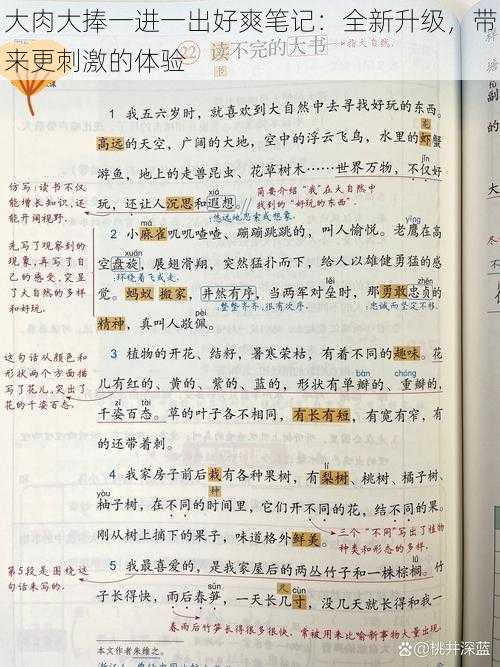 大肉大捧一进一出好爽笔记：全新升级，带
来更刺激的体验
22 读不完的大书
指大自然。
课
1 我五六岁时，就喜欢到大自然中去寻找好玩的东西。
高远的天空，广阔的大地，空中的浮云飞鸟，水里的虾蟹
游鱼，地上的走兽昆虫、花草树木……世界万物，不仅好
jǐn
玩，还让人沉思和遐想。
xiá
悠远地思索或想象。
简要介绍“我”在大自然中
找到的“好玩的东西”。
仿写：读书不仅
能增长知识，还
能开阔视野。
2 小麻雀叽叽喳喳、蹦蹦跳跳的，叫人愉悦。老鹰在高
má
yīng
空盘旋，展翅滑翔，突然猛扑而下，给人以雄健勇猛的感
环绕着飞或走。
觉。蚂蚁搬家，井然有序，当两军对垒时，那勇敢忠贞的
zhēn
整整齐齐，很有次序。
忠诚而坚定不移。
精神，真叫人敬佩。
pèi
先写了观察到的
现象，再写了自
己的感受，突显
了大自然的多样
和好玩。
3 植物的开花、结籽，暑寒荣枯，有着不同的趣味。花
儿有红的、黄的、紫的、蓝的，形状有单瓣的、重瓣的，
bàn
chóng
千姿百态。草的叶子各不相同，有长有短，有宽有窄，有
zī
tài
的还带着刺。
这句话从颜色和
形状两个方面描
写了花儿，突出了
花的千姿百态。
4 我家房子前后栽有各种果树，有梨树、桃树、橘子树、
种
lí
柚子树，在不同的时间里，它们开不同的花，结不同的果。
yòu
刚从树上摘下的果子，味道格外鲜美。
三个“不同”写出了植物
种类和形态的多样。
5 我最喜爱的，是我家屋后的两丛竹子和一株棕榈。竹
子长得快，雨后春笋，一天长几寸，没几天就长得和大
sǔn
cùn
第5段是围绕这
句话来写的。
春雨后竹笋长得很多很快，常被用来比喻新事物大量出现。
本文作者朱维之。
知乎 @桃井深蓝